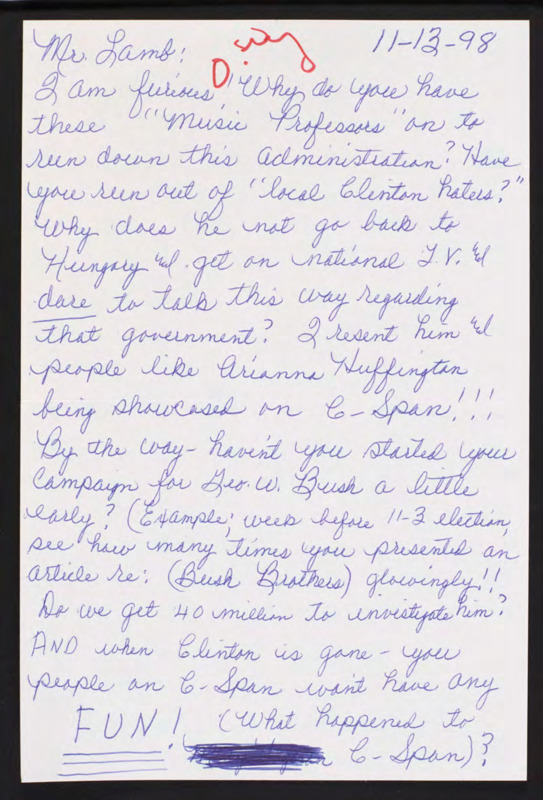 Mr. Lamb: 11-13-98
I am furious! Why do you have
these "Music Professors" on to
run down this administration? Have
you run out of "local Clinton haters?"
Why does he not go back to
Hungary & get on national T.V. &
dare to talk this way regarding
that government? I resent him &
people like Arianna Huffington
being showcased on C-Span!!!
By the way- haven't you started your
campaign for Geo. W. Bush a little
early? (Example; week before 11-3 election,
see how many times you presented an
article re: (Bush Brothers) glowingly!!
Do we get 40 million to investigate him?
AND when Clinton is gone - you
people on C-Span won't have any
FUN! (What happened to
C-Span)?